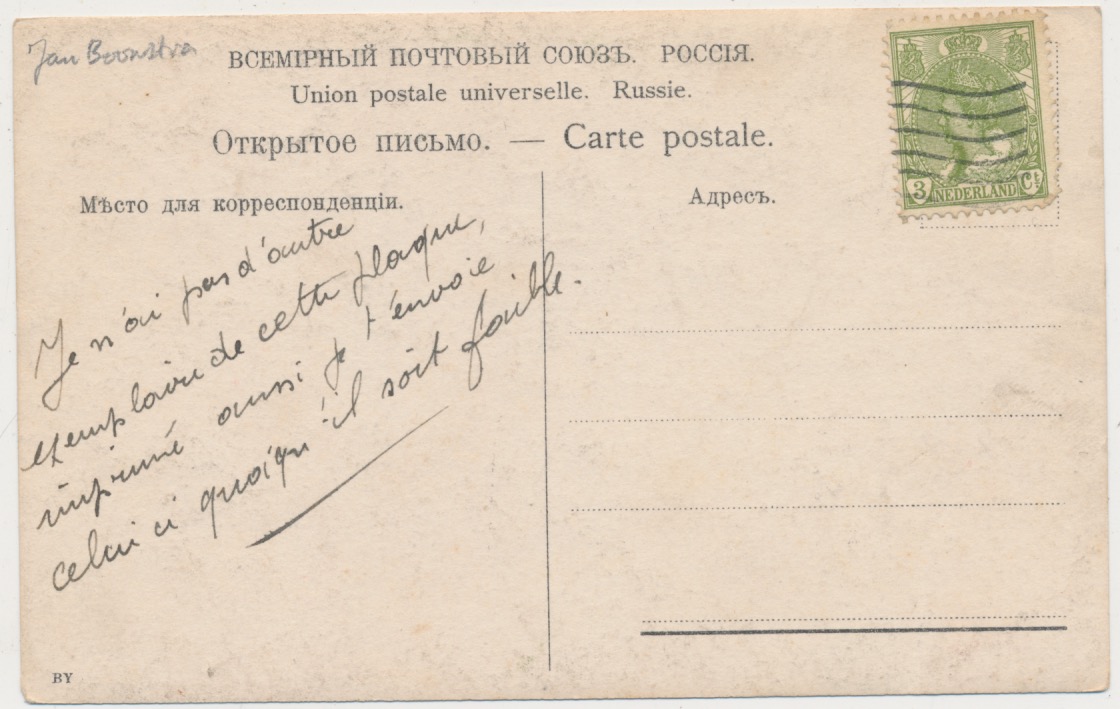 Jan Boonstra
ВСЕМІРНЫЙ ПОЧТОВЫЙ СОЮЗЪ. РОССІЯ.
Union postale universelle. Russie.
Открытое письмо. — Carte postale.
Мѣсто для корреспонденціи.
Адресъ.
3 NEDERLAND Ct
Je n'ai pas d'autre
exemplaire de cette plaque,
imprimé aussi je t'envoie
celui ci quoiqu'il soit faible.
BY